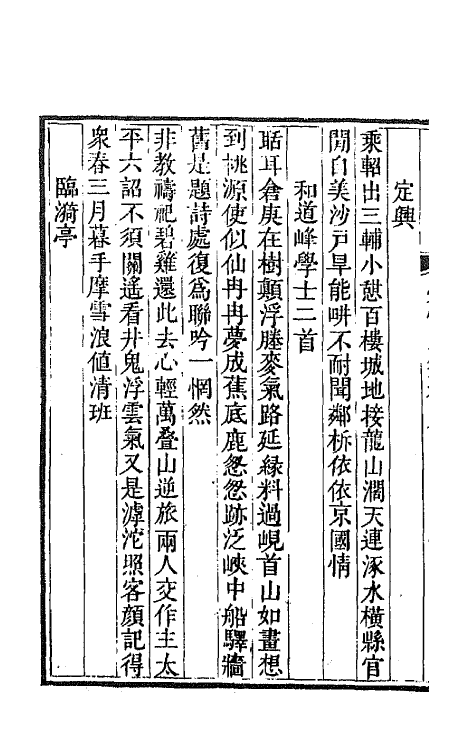 定興
乘軺出三輔小憩百樓城地接龍山濶天連涿水橫縣官
閒白美沙戸旱能畊不耐聞鄰柝依依京國情
和道峰學士二首
聒耳倉庚在樹顛浮塍麥氣路延緣料過峴首山如畫想
到桃源使似仙冉冉夢成蕉底鹿怱怱跡泛峽中船驛牆
舊是題詩處復爲聯吟一惘然
非教禱祀碧雞還此去心輕萬叠山逆旅兩人交作主太
平六詔不須關遙看井鬼浮雲氣又是滹沱照客顏記得
衆春三月暮手摩雪浪値清班
臨漪亭